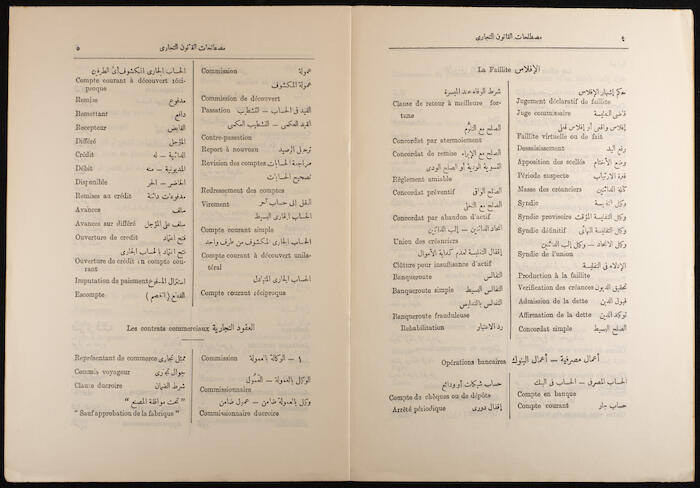 ٤
مصطلحات القانون التجارى
La Faillite الإفلاس
حكم إشهار الإفلاس
Jugement déclaratif de faillite
قاضى التفليسة
Juge commissaire
إفلاس واقعى أو إفلاس فعلى
Faillite virtuelle ou de fait
رفع اليد
Dessaisissement
وضع الأختام
Apposition des scellés
فترة الارتياب
Période suspecte
كتلة الدائنين
Masse des créanciers
وكيل التفليسة
Syndic
وكيل التفليسة المؤقت
Syndic provisoire
وكيل التفليسة النهائى
Syndic définitif
وكيل الاتحاد — وكيل إلب الدائنين
Syndic de l'union
الإدلاء فى التفليسة
Production à la faillite
تحقيق الديون
Verification des créances
قبول الدين
Admission de la dette
توكيد الدين
Affirmation de la dette
الصلح البسيط
Concordat simple
شرط الوفاء عند الميسرة
Clause de retour à meilleure for-
tune
الصلح مع
Concordat par atermoiement
الصلح مع الإبراء
Concordat de remise
التسوية الودية أو الصلح الودى
Règlement amiable
الصلح الواقى
Concordat préventif
الصلح مع التخلى
Concordat par abandon d'actif
اتحاد الدائنين — إلب الدائنين
Union des créanciers
إقفال التفليسة لعدم كفاية الأموال
Clôture pour insuffisance d'actif
التفالس
Banqueroute
التفالس البسيط
Banqueroute simple
التفالس بالتدليس
Banqueroute frauduleuse
رد الاعتبار
Rehabilitation
أعمال مصرفية — أعمال البنوك
Opérations bancaires
الحساب المصرفى — الحساب فى البنك
Compte en banque
حساب جار
Compte courant
حساب شيكات أو ودائع
Compte de chèques ou de dépôts
إقفال دورى
Arrêté périodique
مصطلحات القانون التجارى
٥
عمولة
Commission
عمولة المكشوف
Commission de découvert
القيد فى الحساب — التشطيب
Passation
القيد العكسى — التشطيب العكسى
Contre-passation
ترحيل الرصيد
Report à nouveau
مراجعة الحسابات
Revision des comptes
تصحيح الحسابات
Redressement des comptes
النقل إلى حساب آخر
Virement
الحساب الجارى البسيط
Compte courant simple
الحساب الجارى المكشوف من طرف واحد
Compte courant à découvert unila-
téral
الحساب الجارى المتبادل
Compte courant réciproque
الحساب الجارى المكشوف من الطرفين
Compte courant à découvert réci-
proque
مدفوع
Remise
دافع
Remettant
القابض
Recepteur
المؤجل
Différé
الدائنية — له
Crédit
المديونية — منه
Débit
الحاضر — الحر
Disponible
مدفوعات دائنة
Remises au crédit
سلف
Avances
سلف على المؤجل
Avances sur différé
فتح اعتماد
Ouverture de crédit
فتح اعتماد بالحساب الجارى
Ouverture de crédit en compte cou-
rant
استنزال المدفوع
Imputation de paiement
القطع (الخصم)
Escompte
Les contrats commerciaux العقود التجارية
١ — الوكالة بالعمولة
Commission
الوكيل بالعمولة — العمول
Commissionnaire
وكيل بالعمولة ضامن — عمول ضامن
Commissionnaire ducroire
ممثل تجارى
Représentant de commerce
جوال تجارى
Commis voyageur
شرط الضمان
Clause ducroire
" تحت موافقة المصنع "
"Sauf approbation de la fabrique"